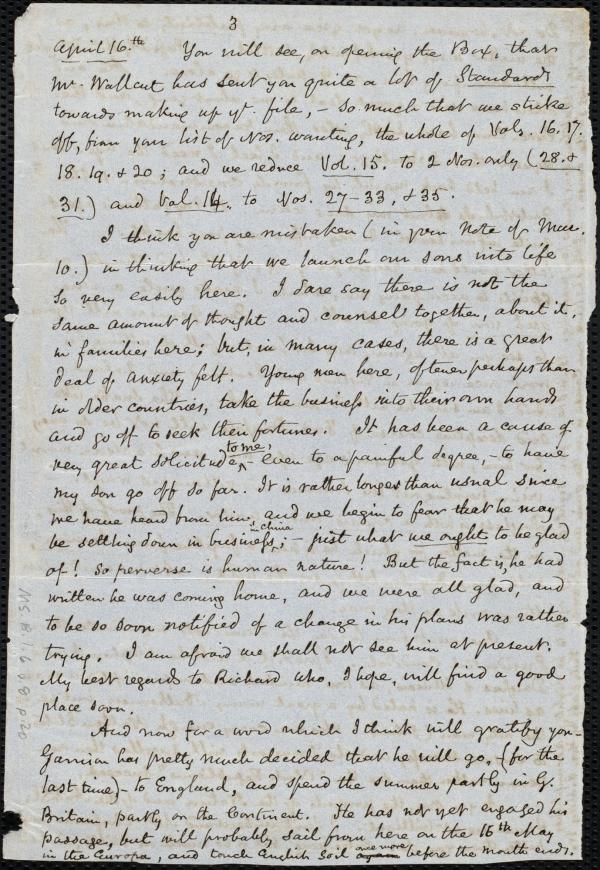 3
April 16.th You will see, on opening the Box, that
Mr. Wallcut has sent you quite a lot of Standards
towards making up yr. file, – so much that we strike
off, from your list of Nos. wanting, the whole of Vols. 16. 17.
18. 19. & 20; and we reduce Vol. 15. to 2 Nos. only (28. &
31.) and Vol. 14. to Nos. 27–33, & 35.
I think you are mistaken (in your note of Mar.
10.) in thinking that we launch our sons into life
so very easily here. I dare say there is not the
same amount of thought and counsel together, about it,
in families here; but, in many cases, there is a great
deal of anxiety felt. Young men here, oftener perhaps than
in older countries, take the business into their own hands
and go off to seek their fortunes. It has been a cause of
very great solicitude to me, – even to a painful degree, – to have
my son go off so far. It is rather longer than usual since
we have heard from him, and we begin to fear that he may
be settling down in business in China; – just what we ought to be glad
of! So perverse is human nature! But the fact is, he had
written he was coming home, and we were all glad, and
to be so soon notified of a change in his plans was rather
trying. I am afraid we shall not see him at present.
My best regards to Richard who, I hope, will find a good
place soon.
And now for a word which I think will gratify you –
Garrison has pretty much decided that he will go, (for the
last time) – to England, and spend the summer partly in G.
Britain, partly on the Continent. He has not yet engaged his
passage, but will probably sail from here on the 16th May
in the Europa, and touch English soil once more before the month ends.
MS. A. 1. 6 v. 8 p. 20